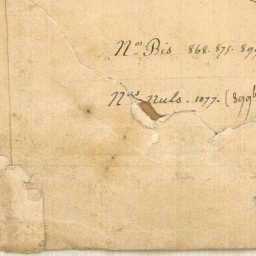 Nos Bis 868. 875. 89
Nos Nuls. 1077. (899b